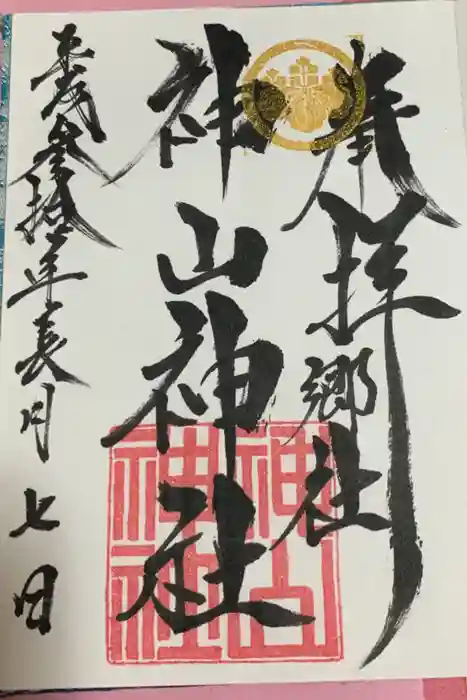 奉拝
郷社
神山神社
神山
神社
平成参拾年長月七日